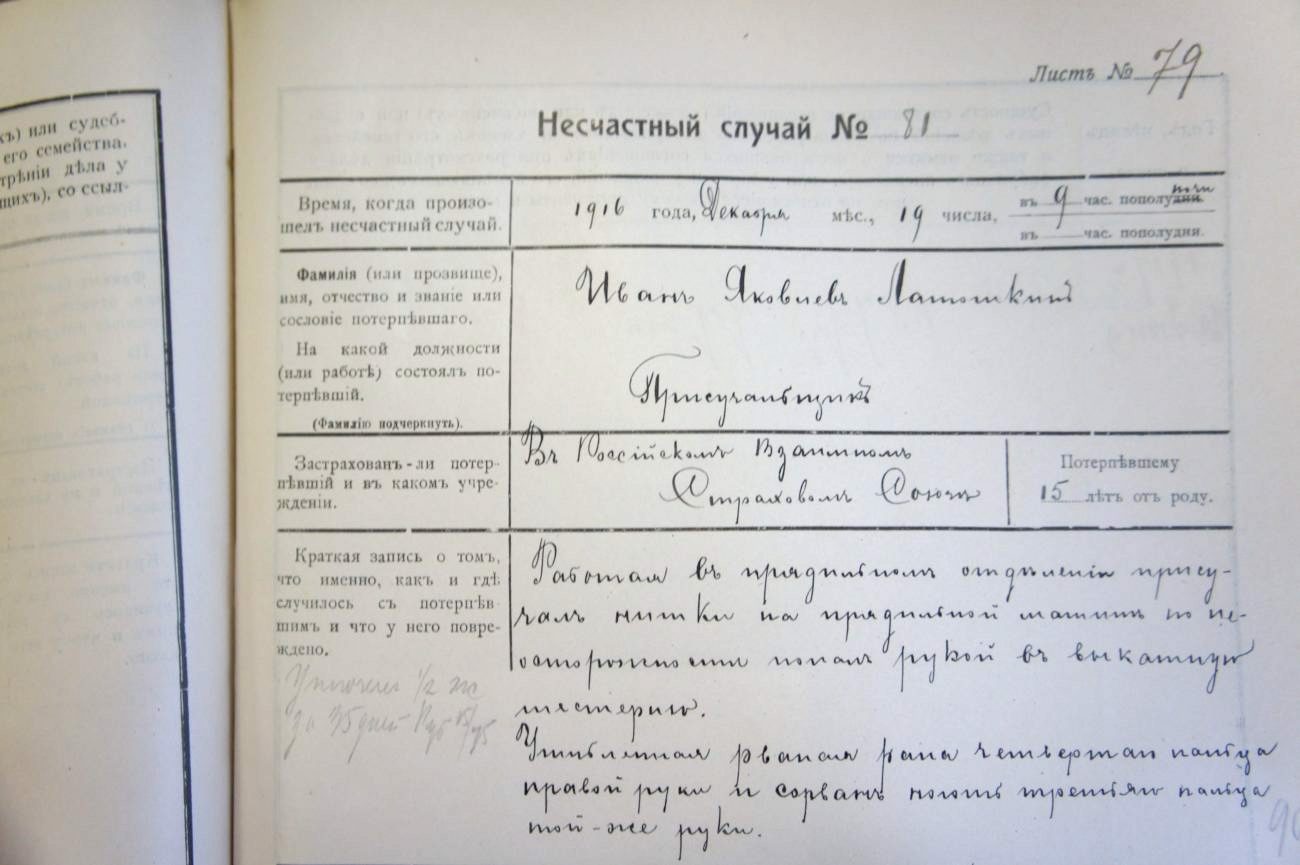 къ) или судеб-
его семейства.
трѣніи дѣла у
щихъ), со ссыл-
Листъ № 79
Несчастный случай № 81
Время, когда произо-
шелъ несчастный случай.
1916 года, Декабря мѣс., 19 числа,
въ 9 час. пополудни. ночи
въ час. пополудня.
Фамилія (или прозвище),
имя, отчество и званіе или
сословіе потерпѣвшаго.
На какой должности
(или работѣ) состоялъ по-
терпѣвшій.
(Фамилію подчеркнуть).
Иванъ Яковлевъ Латошкинъ
Присучальщикъ
Застрахованъ-ли потер-
пѣвшій и въ какомъ учре-
жденіи.
Въ Россійскомъ Взаимномъ
Страховомъ Союзѣ
Потерпѣвшему
15 лѣтъ отъ роду.
Краткая запись о томъ,
что именно, какъ и гдѣ
случилось съ потерпѣв
шимъ и что у него повре-
ждено.
Работая въ прядильномъ отдѣленіи прису-
чалъ нитки на прядильной машинѣ по не-
осторожности попалъ рукой въ выкатную
шестерню.
Ушибленная рваная рана четвертаго пальца
правой руки и сорванъ ноготь третьяго пальца
той-же руки.
за 35 дней